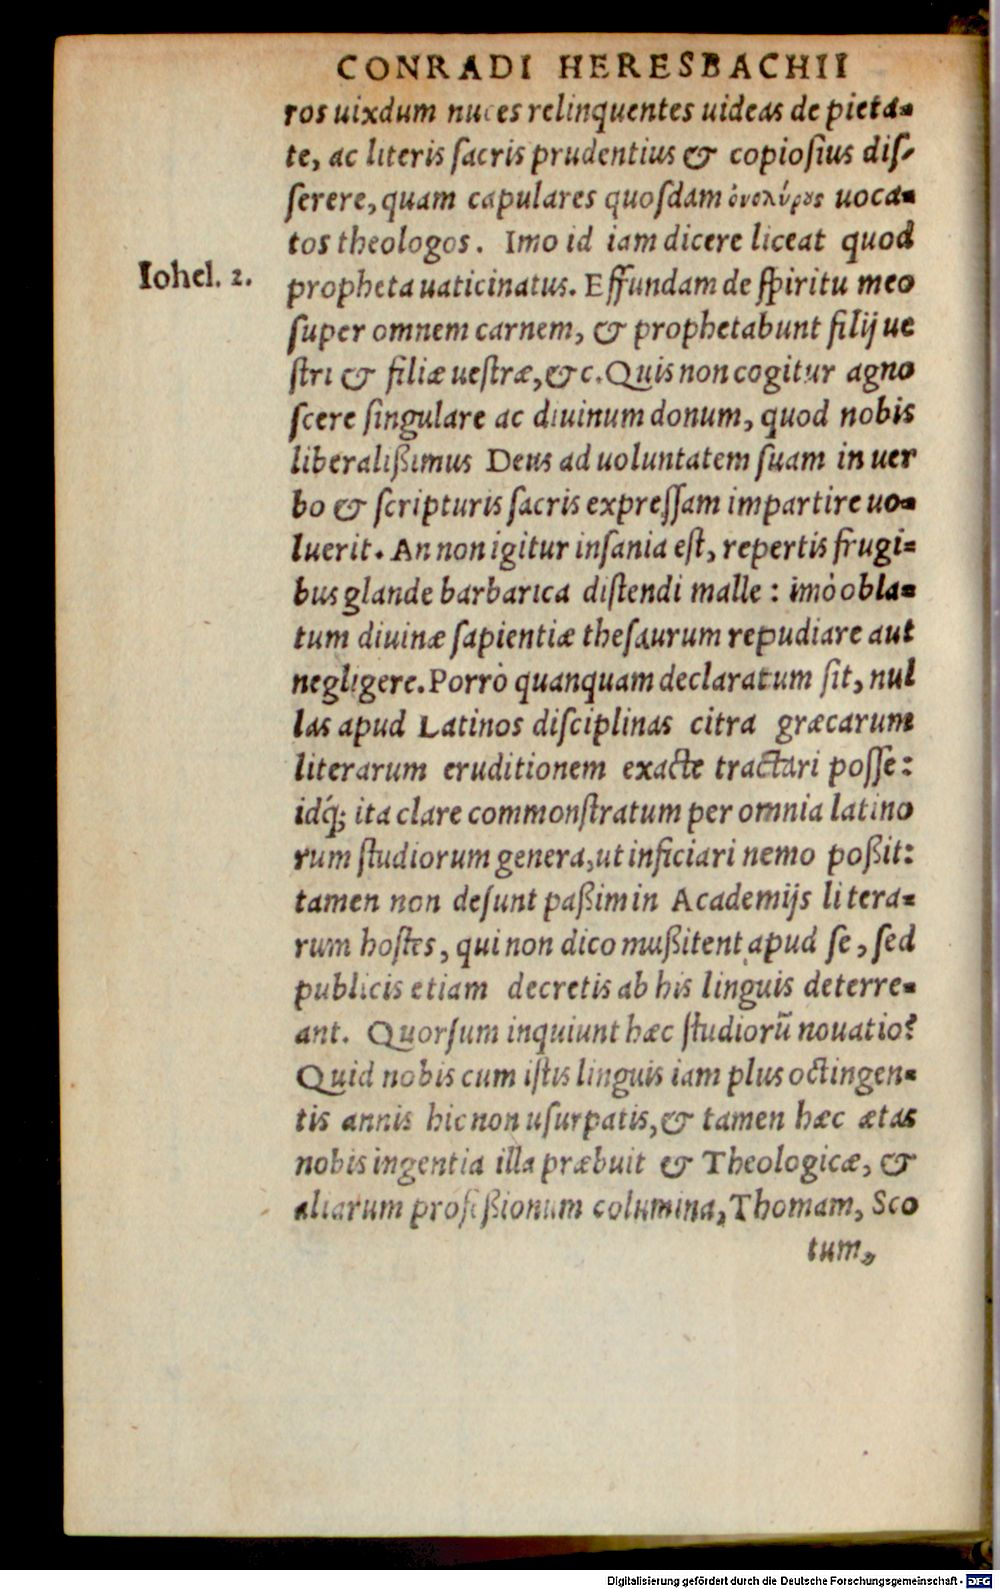 CONRADI HERESBACHII
ros uixdum nuces relinquentes uideas de pieta-
te, ac literis ſacris prudentius & copioſius diſ-
ſerere, quam capulares quoſdam ὀνολύρους uoca-
tos theologos. Imo id iam dicere liceat quod
Iohel. 2.
propheta uaticinatus. Effundam de ſpiritu meo
ſuper omnem carnem, & prophetabunt filij ue
ſtri & filiæ ueſtræ, &c. Quis non cogitur agno
ſcere ſingulare ac diuinum donum, quod nobis
liberalißimus Deus ad uoluntatem ſuam in uer
bo & ſcripturis ſacris expreſſam impartire uo-
luerit. An non igitur inſania eſt, repertis frugi-
bus glande barbarica diſtendi malle: imò obla-
tum diuinæ ſapientiæ theſaurum repudiare aut
negligere. Porrò quanquam declaratum ſit, nul
las apud Latinos diſciplinas citra græcarum
literarum eruditionem exacte tractari poſſe:
idq́; ita clare commonſtratum per omnia latino
rum ſtudiorum genera, ut inficiari nemo poßit:
tamen non deſunt paßim in Academijs litera-
rum hoſtes, qui non dico mußitent apud ſe, ſed
publicis etiam decretis ab his linguis deterre-
ant. Quorſum inquiunt hæc ſtudiorũ nouatio?
Quid nobis cum iſtis linguis iam plus octingen-
tis annis hic non uſurpatis, & tamen hæc ætas
nobis ingentia illa præbuit & Theologicæ, &
aliarum profeßionum columina, Thomam, Sco
tum,
Digitalisierung gefördert durch die Deutsche Forschungsgemeinschaft - DFG